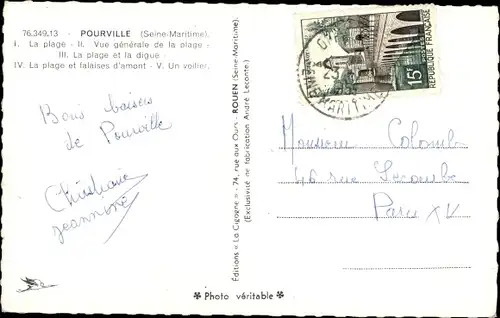 76.349.13 - POURVILLE (Seine-Maritime).
I. La plage - II. Vue générale de la plage -
III. La plage et la digue -
IV. La plage et falaises d'amont - V. Un voilier.
Bons baisers
de Pourville
Christiane
Jeannine
Editions « La Cigogne » - 74, rue aux Ours - ROUEN (Seine-Maritime)
(Exclusivité de fabrication André Leconte.)
✽ Photo véritable ✽
15F
REPUBLIQUE FRANÇAISE
MARITIME
Monsieur Colomb
46 rue Lecombe
Paris XV